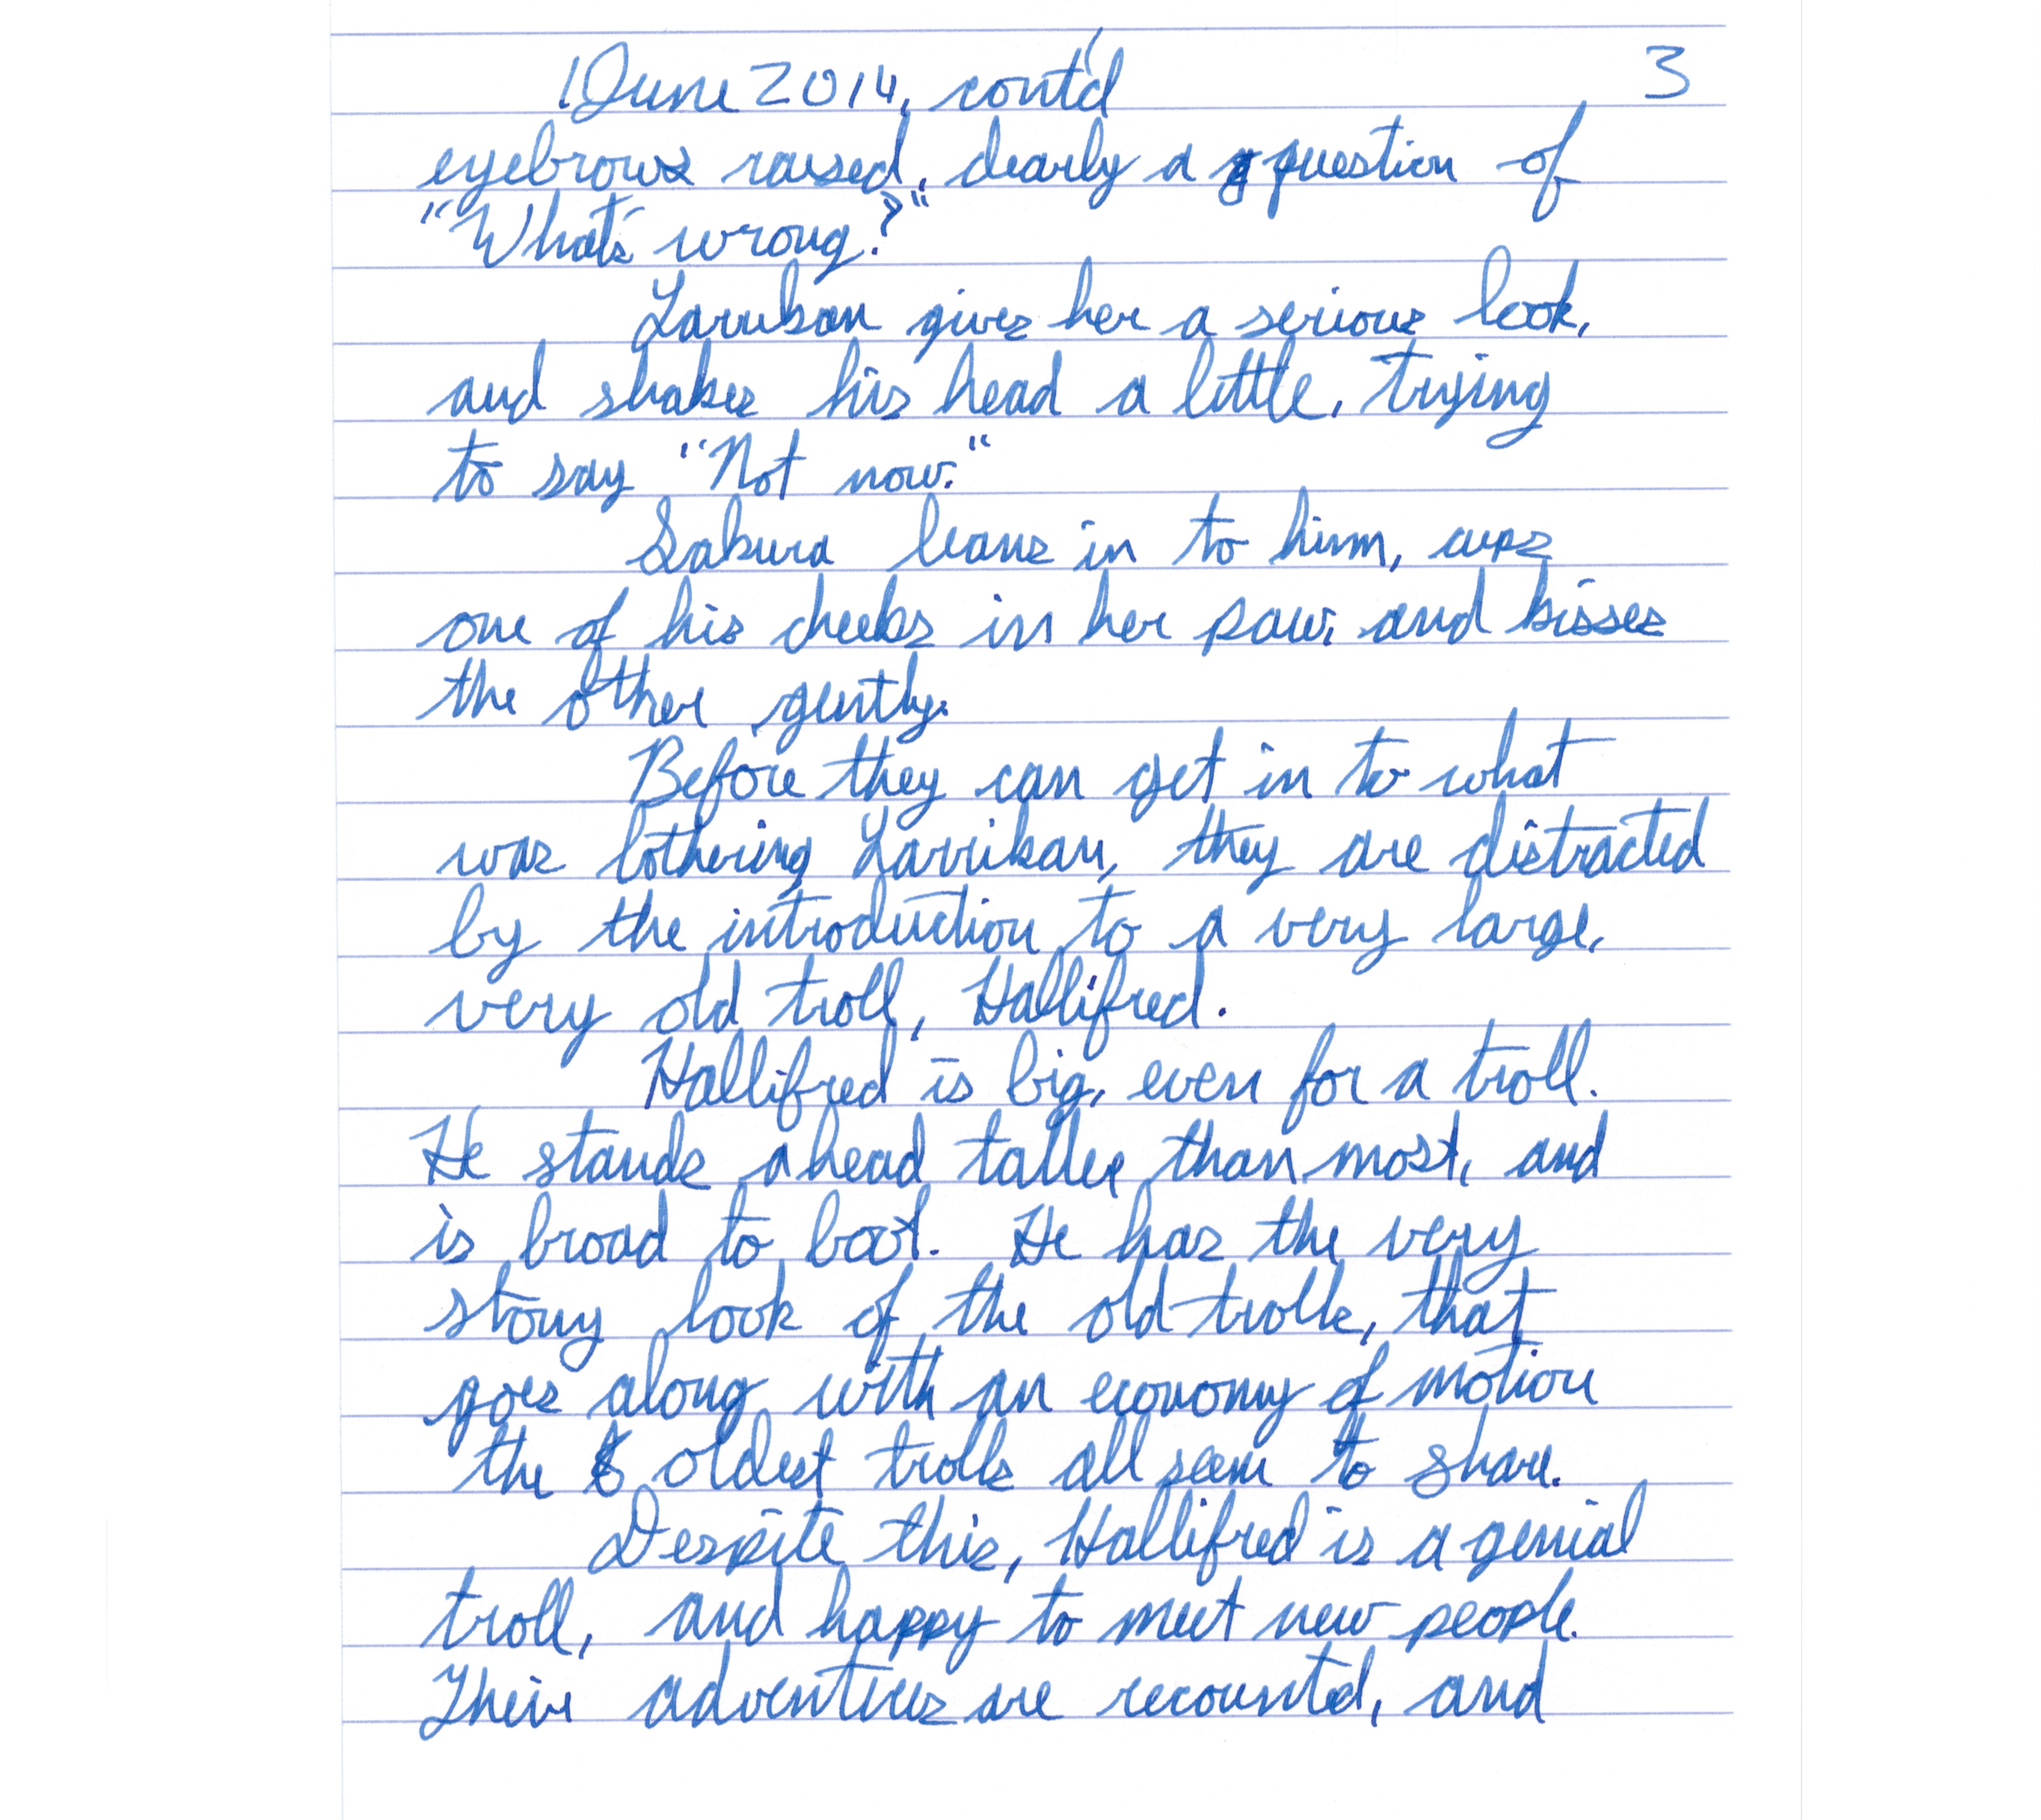 1 June 2014, cont'd 3
eyebrows raised, clearly a question of
"What's wrong?"
Larrikan gives her a serious look,
and shakes his head a little, trying
to say "Not now."
Sakura leans in to him, cups
one of his cheeks in her paw, and kisses
the other gently.
Before they can get in to what
was bothering Larrikan, they are distracted
by the introduction to a very large,
very old troll, Hallifred.
Hallifred is big, even for a troll.
He stands a head taller than most, and
is broad to boot. He has the very
stony look of the old trolls, that
goes along with an economy of motion
the oldest trolls all seem to share.
Despite this, Hallifred is a genial
troll, and happy to meet new people.
Their adventures are recounted, and